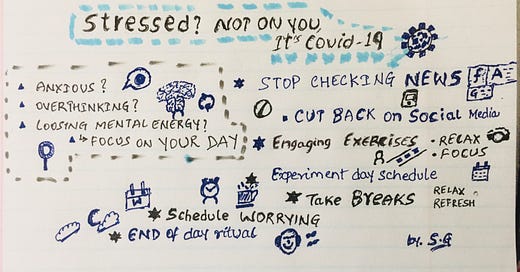 Stressed? NOT ON YOU,
IT's Covid-19
ANXIOUS?
OVERTHINKING?
LOOSING MENTAL ENERGY?
FOCUS ON YOUR DAY
STOP CHECKING NEWS f A
G
CUT BACK on Social Media
Engaging EXERCISES • RELAX
• FOCUS
Experiment day schedule
Take BREAKS RELAX
REFRESH
W
Schedule WORRYING
END OF day ritual
by. S.G